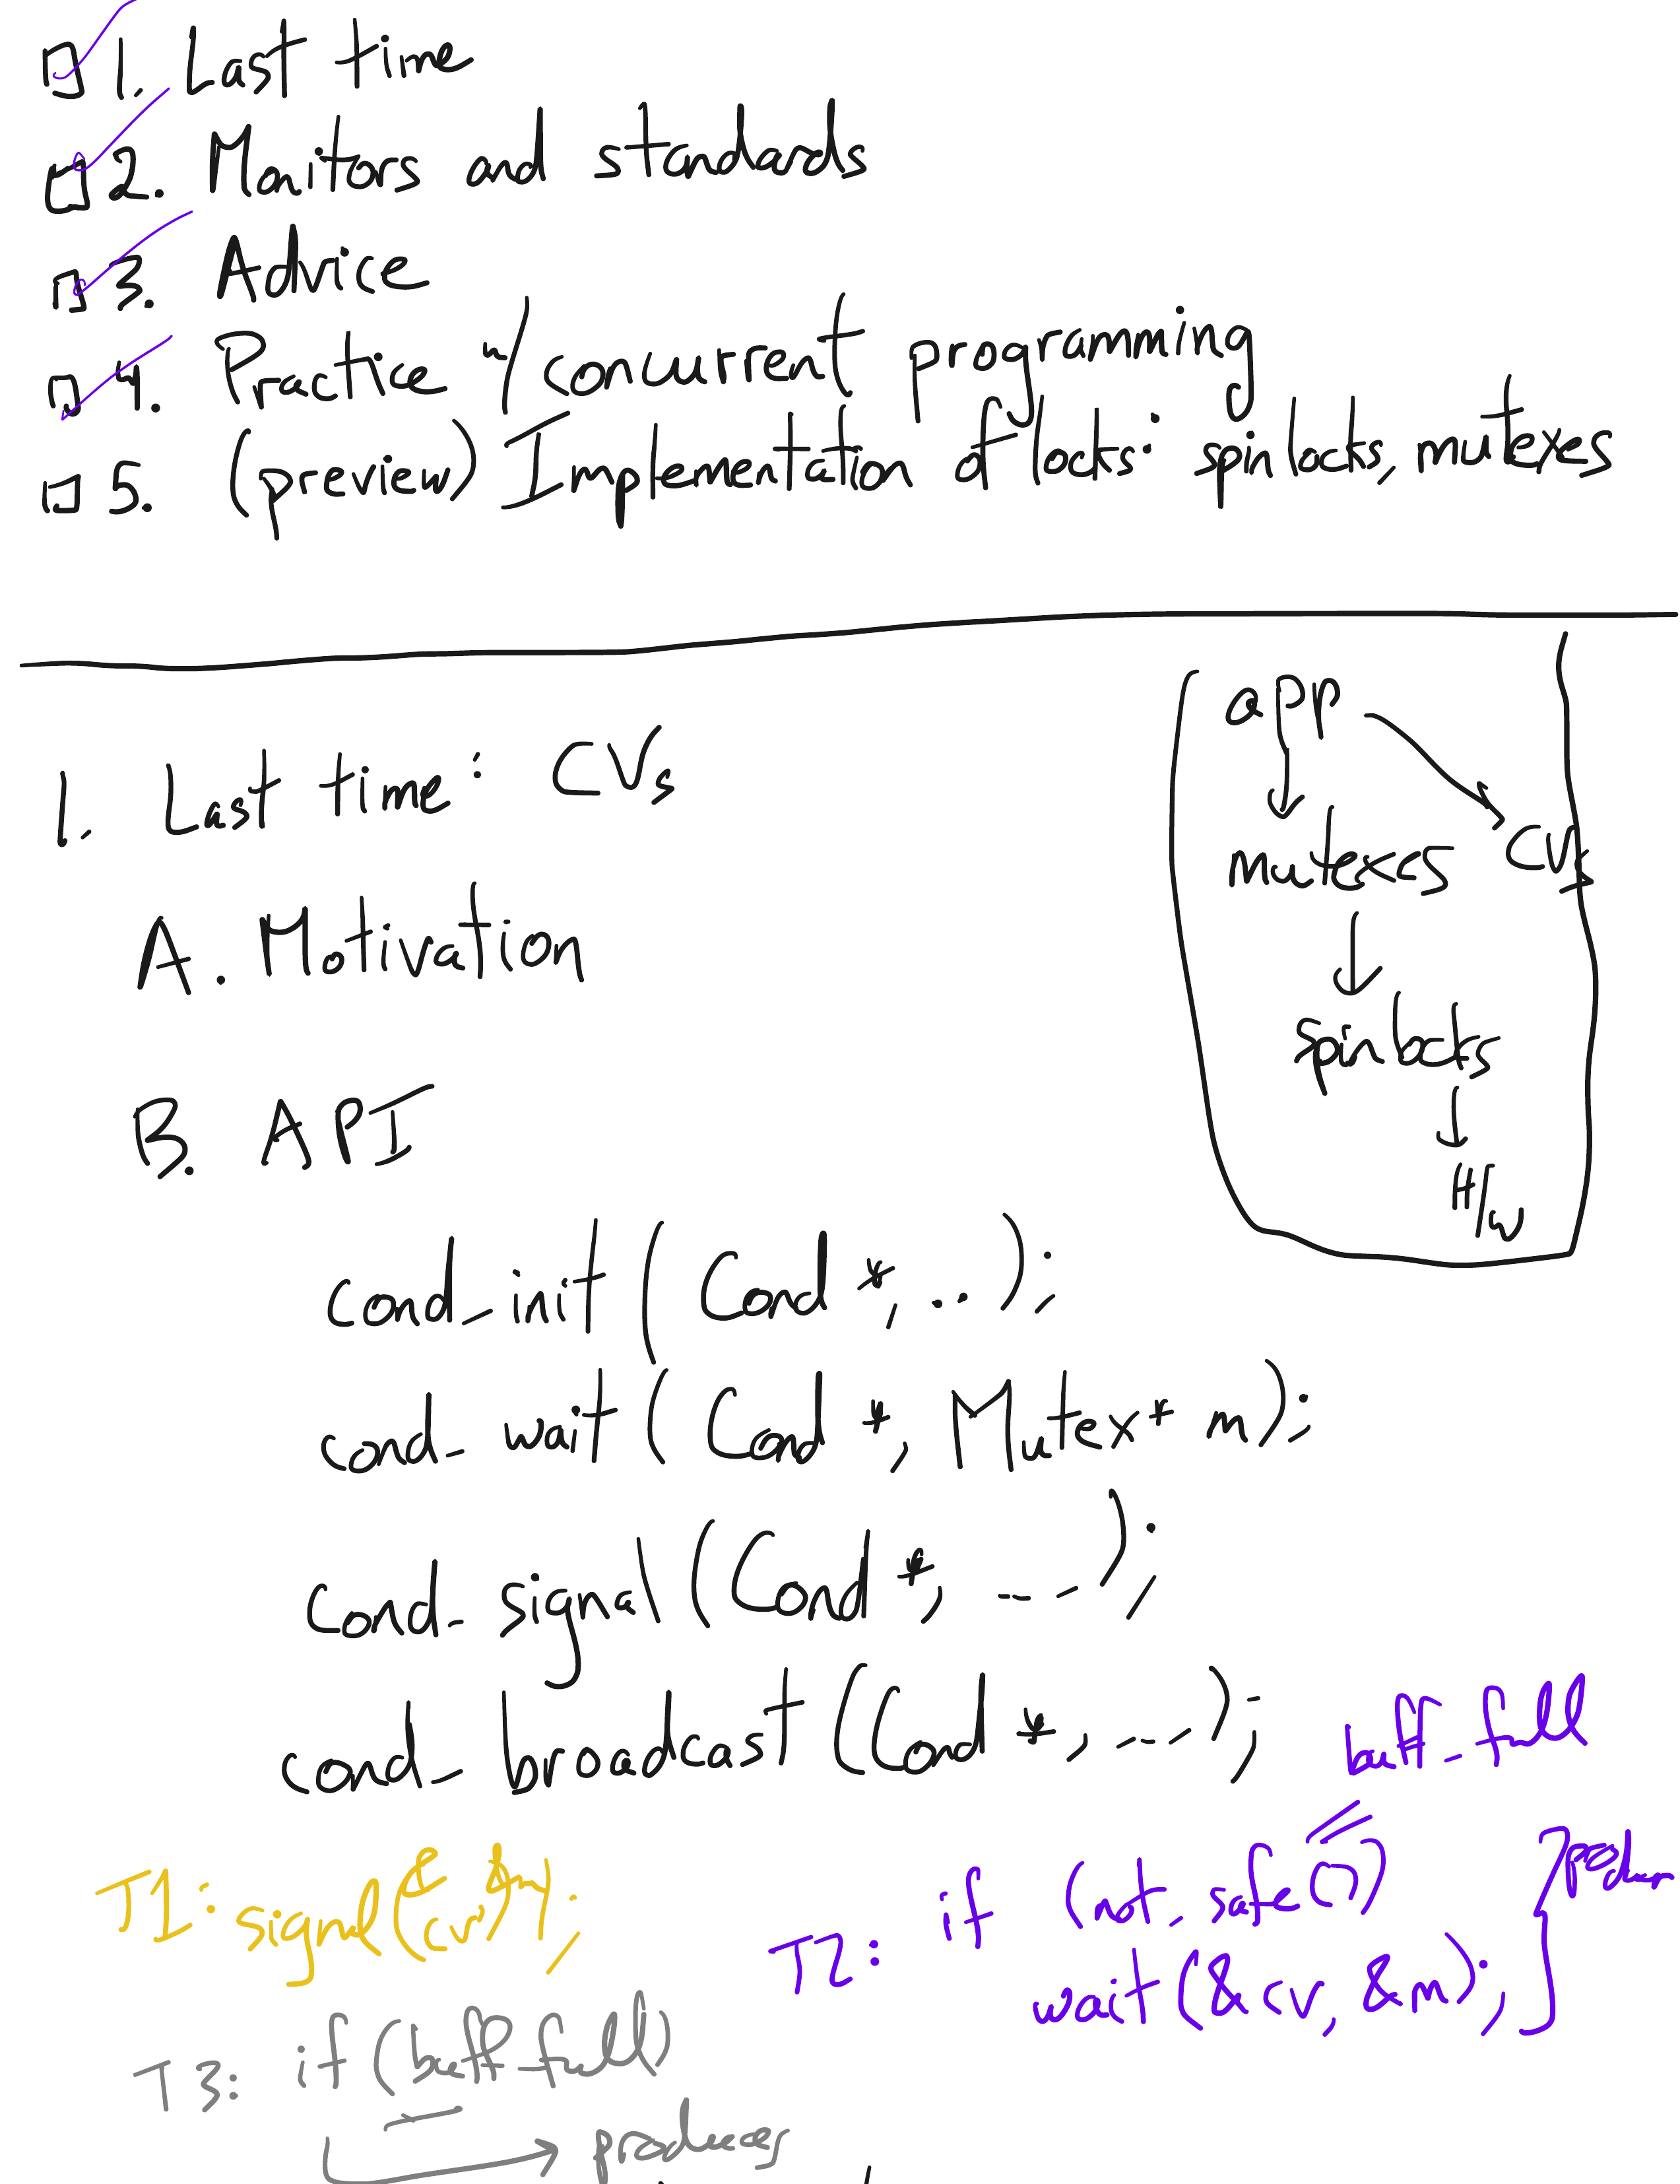 1. Last time
2. Monitors and standards
3. Advice
4. Practice w/ concurrent programming
5. (preview) Implementation of locks: spinlocks, mutexes
app
mutexes CVs
spinlocks
H/w
1. Last time: CVs
A. Motivation
B. API
cond_init (Cond *, ..);
cond_wait (Cond *, Mutex* m);
cond_signal (Cond *, ...);
cond_broadcast (Cond *, ...);
buff_full
T1: signal(& cv, &m);
T2: if (not_safe())
wait(&cv, &m);
T3: if (buff_full)
produces